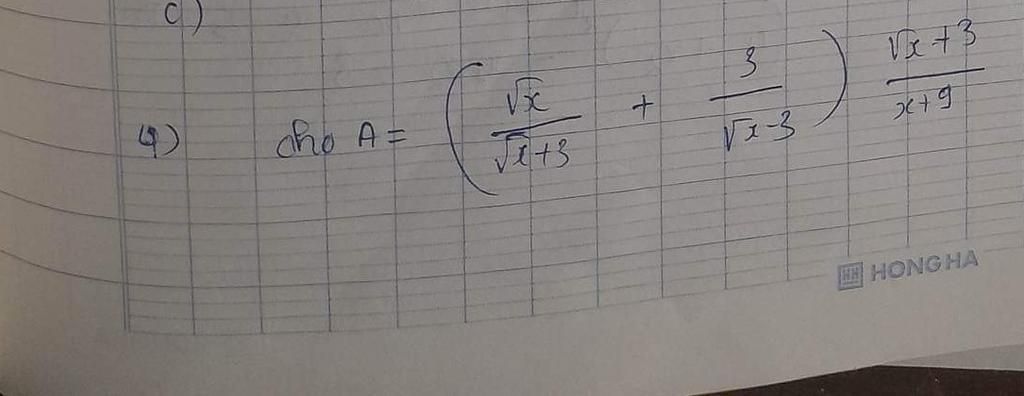 c)
4) cho A = ( √x / (√x+3) + 3 / (√x-3) ) (√x+3) / (x+9)
HONG HA